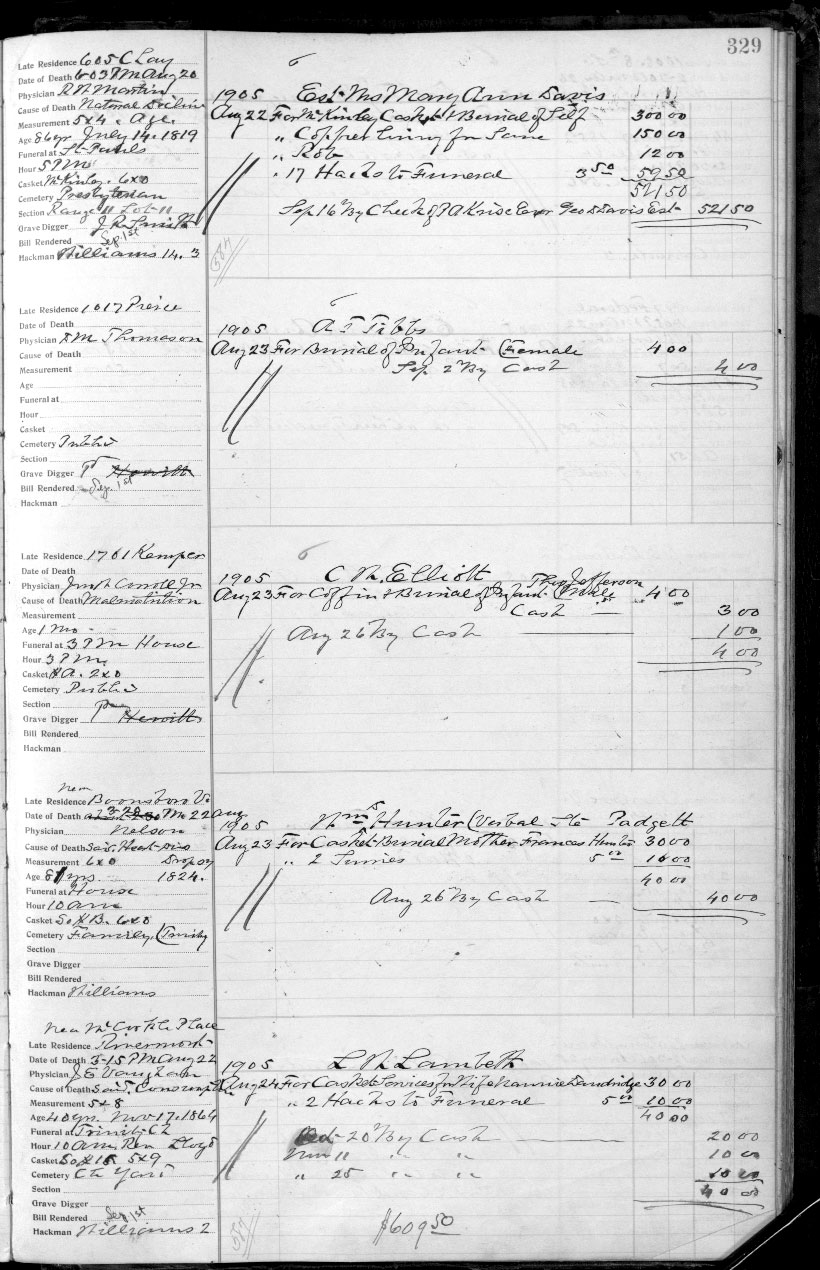 329
Late Residence 605 Clay
Date of Death 6 03 PM Aug 20
Physician R W Martin
Cause of Death Natural Decline
Measurement 5x4. Age.
Age 86 yr July 14. 1819
Funeral at St Pauls
Hour 5 PM
Casket McKinley. 6x0
Cemetery Presbyterian
Section Range 11 Lot 11
Grave Digger J. R. Smith
Bill Rendered Sep 1st
Hackman Williams 14. 3
1905 Est Mrs Mary Ann Davis
Aug 22 For McKinley Casket & Burial of Self 300 00
" Copper Lining for Same 150 00
" Robe 12 00
" 17 Hacks to Funeral 3 50 59 50
521 50
Sep 16 By Check of P A Krise Exor Geo D Davis Est 521 50
Late Residence 1017 Peirce
Date of Death
Physician T M Thomason
Cause of Death
Measurement
Age
Funeral at
Hour
Casket
Cemetery Public
Section
Grave Digger Pd Hewitt
Bill Rendered Sep. 1st
Hackman
1905 A T Tibbs
Aug 23 For Burial of Infant (Female 4 00
Sep 2 By Cash 4 00
Late Residence 1701 Kemper
Date of Death
Physician
Cause of Death Malnutrition
Measurement
Age 1 mo
Funeral at 3 PM House
Hour 3 PM
Casket A. 2x0
Cemetery Public
Section
Grave Digger Hewitt
Bill Rendered
Hackman
1905 C N. Elliott
Thos Jefferson
Aug 23 For Coffin & Burial of Infant (Male 4 00
Cash 3 00
Aug 26 By Cash 1 00
4 00
near
Late Residence Boonsboro Va
Date of Death 3-20 PM 22 Aug
Physician Nelson
Cause of Death Said Heart Dis
Measurement 6x0 Dropsy
Age 81 yrs. 1824.
Funeral at House
Hour 10 am
Casket So X B. 6x0
Cemetery Family, (Trinity
Section
Grave Digger
Bill Rendered
Hackman Williams
1905 Wms Hunter (Verbal Padgett
Aug 23 For Casket Burial Mother Frances Hunter 30 00
" 2 Surries 5 00 10 00
40 00
Aug 26 By Cash 40 00
Near McCorkle Place
Late Residence Rivermont
Date of Death 3-15 PM Aug 22
Physician J. E Vaughan
Cause of Death Said Consumption
Measurement 5x8
Age 40 yrs. Nov 17. 1864
Funeral at Trinity Ch
Hour 10 am, Rev Lloyd
Casket So X 15 5x9
Cemetery Ch Yard
Section
Grave Digger
Bill Rendered Sep 1st
Hackman Williams 2
1905 L N Lambeth
Aug 24 For Casket & Services for Wife Nannie Dandridge 30 00
" 2 Hacks to Funeral 5 00 10 00
40 00
Oct 20 By Cash 20 00
Nov 11 " " 10 00
" 25 " " 10 00
40 00
$609 50